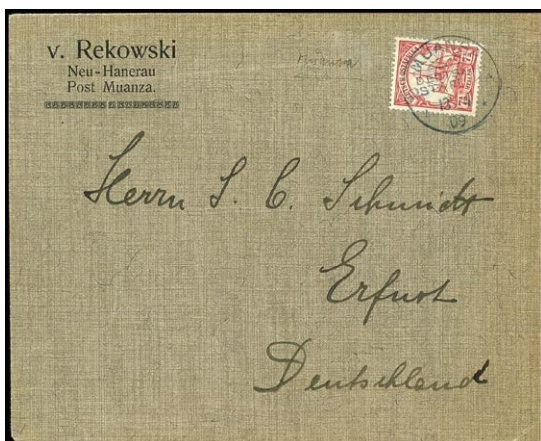 v. Rekowski
Neu-Hanerau
Post Muanza.
MUANZA
13/4
09
Herrn J. C. Schmidt
Erfurt
Deutschland